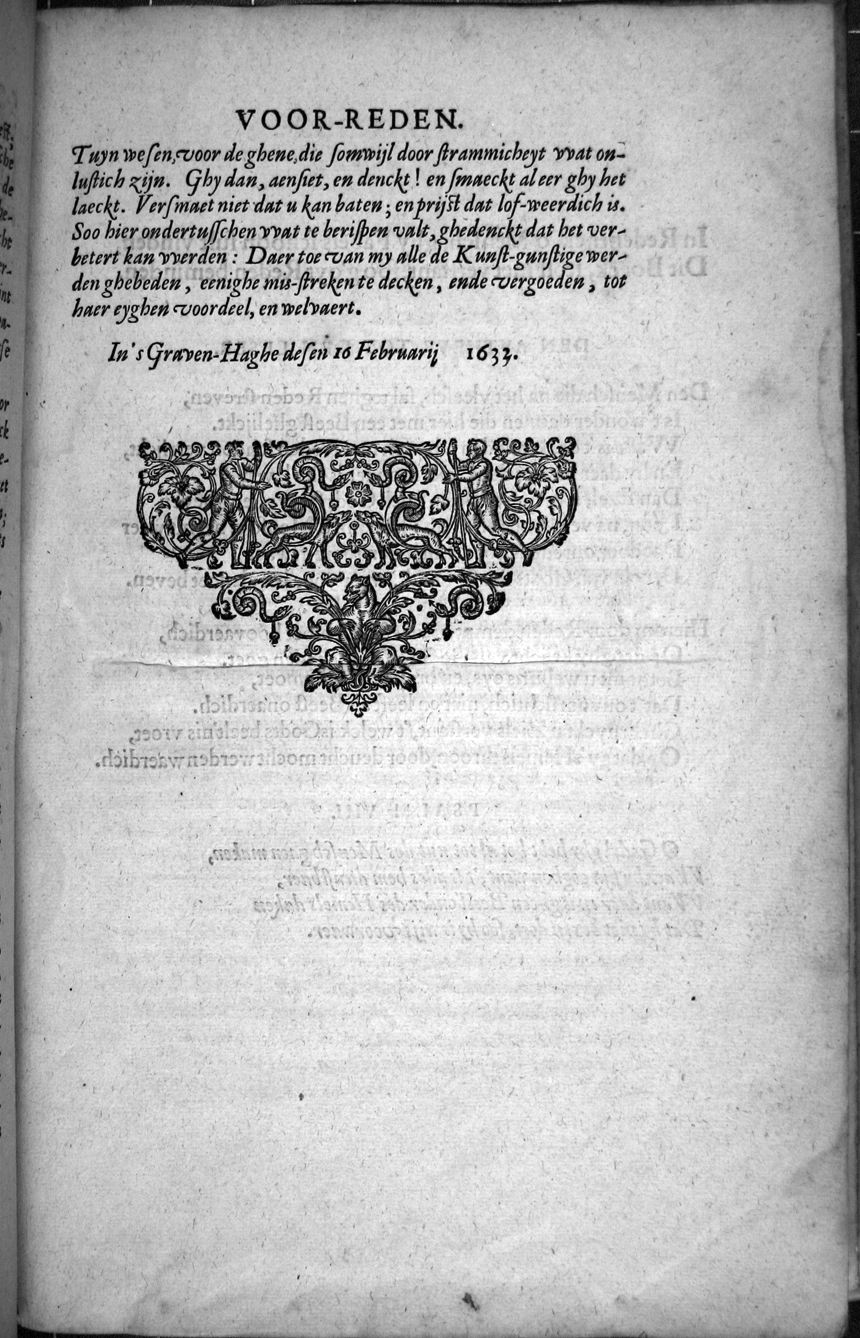 VOOR-REDEN.
Tuyn weſen, voor de ghene, die ſomwijl door ſtrammicheyt vvat on-
luſtich zijn. Ghy dan, aenſiet, en denckt! en ſmaeckt al eer ghy het
laeckt. Verſmaet niet dat u kan baten; en prijſt dat lof-weerdich is.
Soo hier ondertuſſchen vvat te beriſpen valt, ghedenckt dat het ver-
betert kan vverden: Daer toe van my alle de Kunſt-gunſtige wer-
den ghebeden, eenighe mis-ſtreken te decken, ende vergoeden, tot
haer eyghen voordeel, en welvaert.
In's Graven-Haghe deſen 16 Februarij 1633.